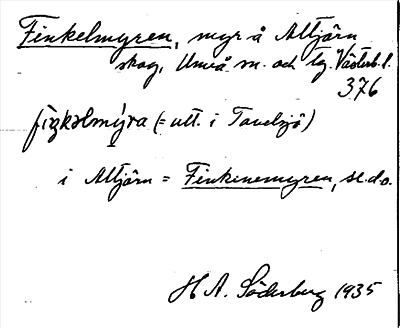 Finkelmyren, myr å Altjärn
skog, Umeå sn. och tg. Västerb. l.
376
fiŋkəlmýra (= utt. i Tavelsjö)
i Altjärn = Finkenemyren, se d.o.
H A. Söderberg 1935